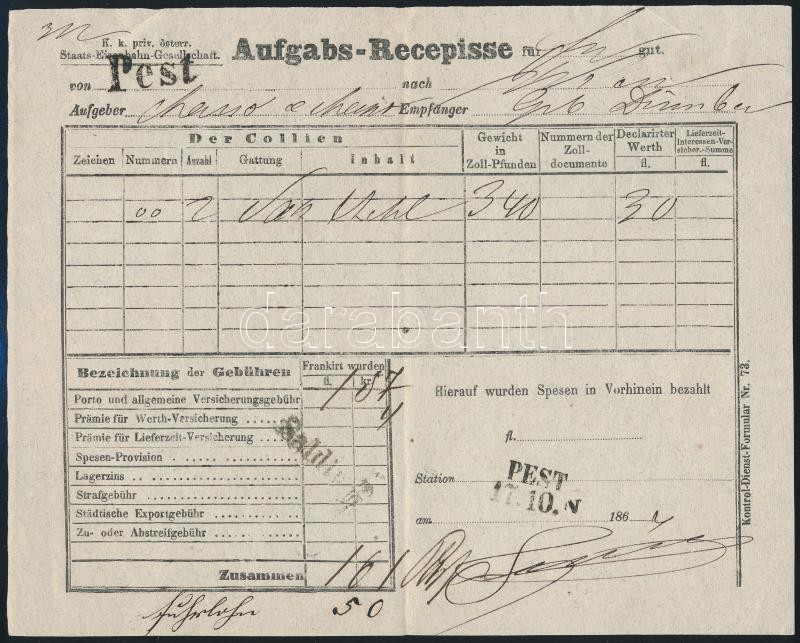 K. k. priv. österr.
Staats-Eisenbahn-Gesellschaft.
Aufgabs-Recepisse für gut.
von Pest nach
Aufgeber Empfänger
Der Collien
Zeichen Nummern Anzahl Gattung Inhalt Gewicht in Zoll-Pfunden Nummern der Zoll-documente Declarirter Werth fl. Lieferzeit-Interessen-Versicher.-Summe fl.
00 2 340 30
Bezeichnung der Gebühren Frankirt wurden
fl. kr.
Porto und allgemeine Versicherungsgebühr
Prämie für Werth-Versicherung
Prämie für Lieferzeit-Versicherung
Spesen-Provision
Lagerzins
Strafgebühr
Städtische Exportgebühr
Zu- oder Abstreifgebühr
Zusammen 161
Fuhrlohn 50
Hierauf wurden Spesen in Vorhinein bezahlt
fl.
Station PEST
17. 10. N
am 186
Kontrol-Dienst-Formular Nr. 73.
darabanth